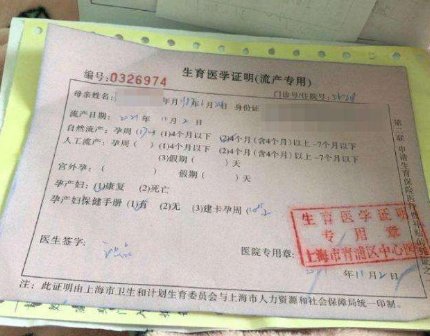 生育医学证明(流产专用)
编号:0326974
门诊号/住院号:
母亲姓名: 年 月 日 身份证
流产日期: 年11月2日
自然流产:孕周( ) (1)4个月以下 (2)4个月(含4个月)以上-7个月以下
人工流产:孕周( ) (1)4个月以下 (2)4个月(含4个月)以上-7个月以下
(3)假期( )天
宫外孕:( ) 假期( )天
孕产妇:(1)康复 (2)死亡
孕产妇保健手册:(1)有 (2)无 (3)建卡孕周( )
生育医学证明
专用章
上海市青浦区中心医
医生签字: 医院专用章:
年11月2日
注:此证明由上海市卫生和计划生育委员会与上海市人力资源和社会保障局统一印制。